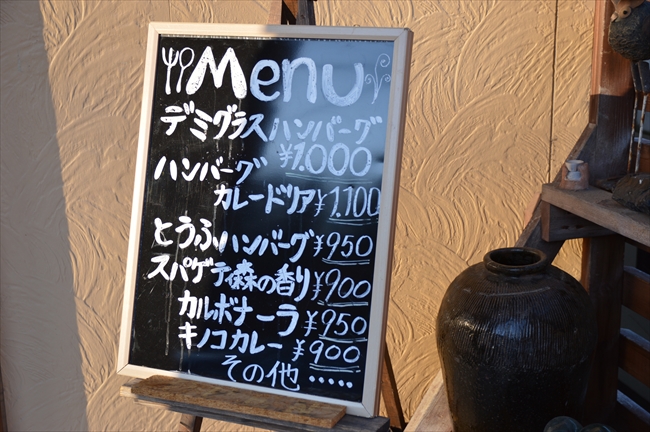 Menu
デミグラスハンバーグ
¥1.000
ハンバーグ
カレードリア¥1.100
とうふハンバーグ¥950
スパゲティ森の香り¥900
カルボナーラ¥950
キノコカレー¥900
その他.....